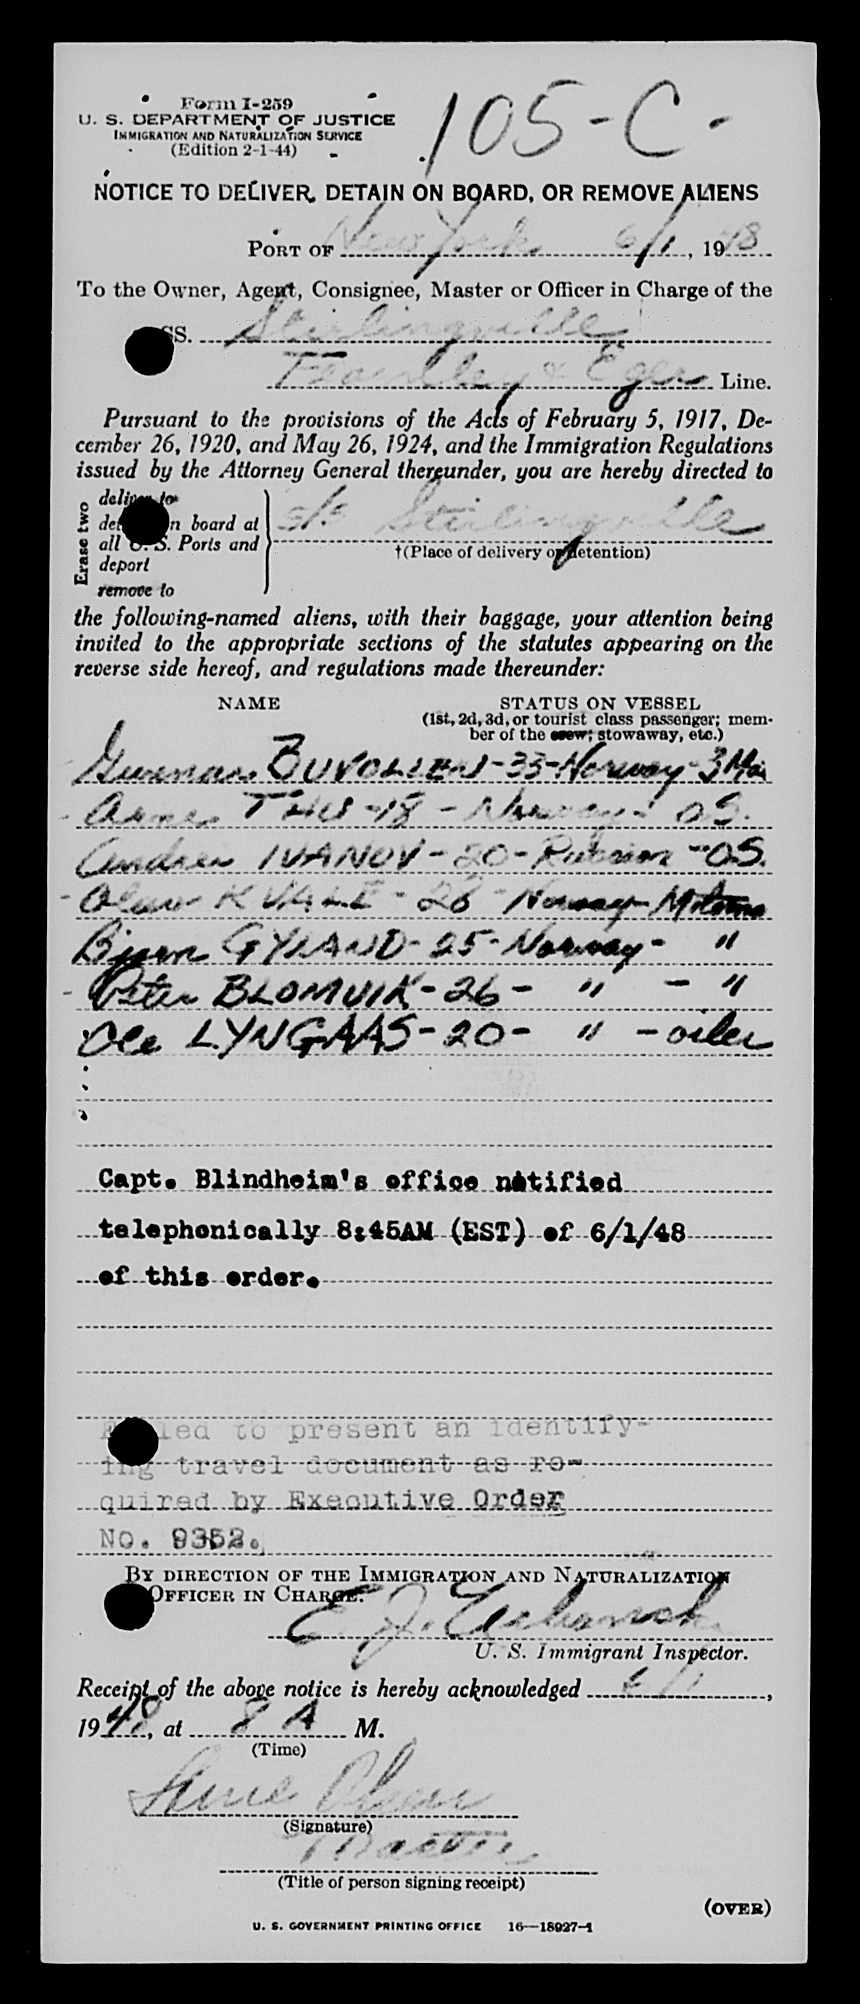 Form I-259
U. S. DEPARTMENT OF JUSTICE
IMMIGRATION AND NATURALIZATION SERVICE
(Edition 2-1-44)
105-C-
NOTICE TO DELIVER, DETAIN ON BOARD, OR REMOVE ALIENS
PORT OF New York 6/1, 1948
To the Owner, Agent, Consignee, Master or Officer in Charge of the
SS. Stirlingville
Fearnley & Eger Line.
Pursuant to the provisions of the Acts of February 5, 1917, De-
cember 26, 1920, and May 26, 1924, and the Immigration Regulations
issued by the Attorney General thereunder, you are hereby directed to
Erase two
deliver to
det n board at
all U. S. Ports and
deport
remove to
s/s Stirlingville
†(Place of delivery or detention)
the following-named aliens, with their baggage, your attention being
invited to the appropriate sections of the statutes appearing on the
reverse side hereof, and regulations made thereunder:
NAME
STATUS ON VESSEL
(1st, 2d, 3d, or tourist class passenger; mem-
ber of the crew; stowaway, etc.)
Gunnar BUVOLLEN-33-Norway-3 Mai
Arne THU-18-Norway-O.S.
Andrei IVANOV-20- -O.S.
Olav KVALE-28-Norway-Motorma
Bjorn GYLAND-25-Norway- "
Peter BLOMVIK-26- " - "
Ole LYNGAAS-20- " -oiler
Capt. Blindheim's office notified
telephonically 8:45AM (EST) of 6/1/48
of this order.
Failed to present an identify-
ing travel document as re-
quired by Executive Order
No. 9352.
BY DIRECTION OF THE IMMIGRATION AND NATURALIZATION
OFFICER IN CHARGE:
E. J.
U. S. Immigrant Inspector.
Receipt of the above notice is hereby acknowledged 6/1,
1948, at 8 A M.
(Time)
Olsen
(Signature)
Master
(Title of person signing receipt)
(OVER)
U. S. GOVERNMENT PRINTING OFFICE 16—18927-1